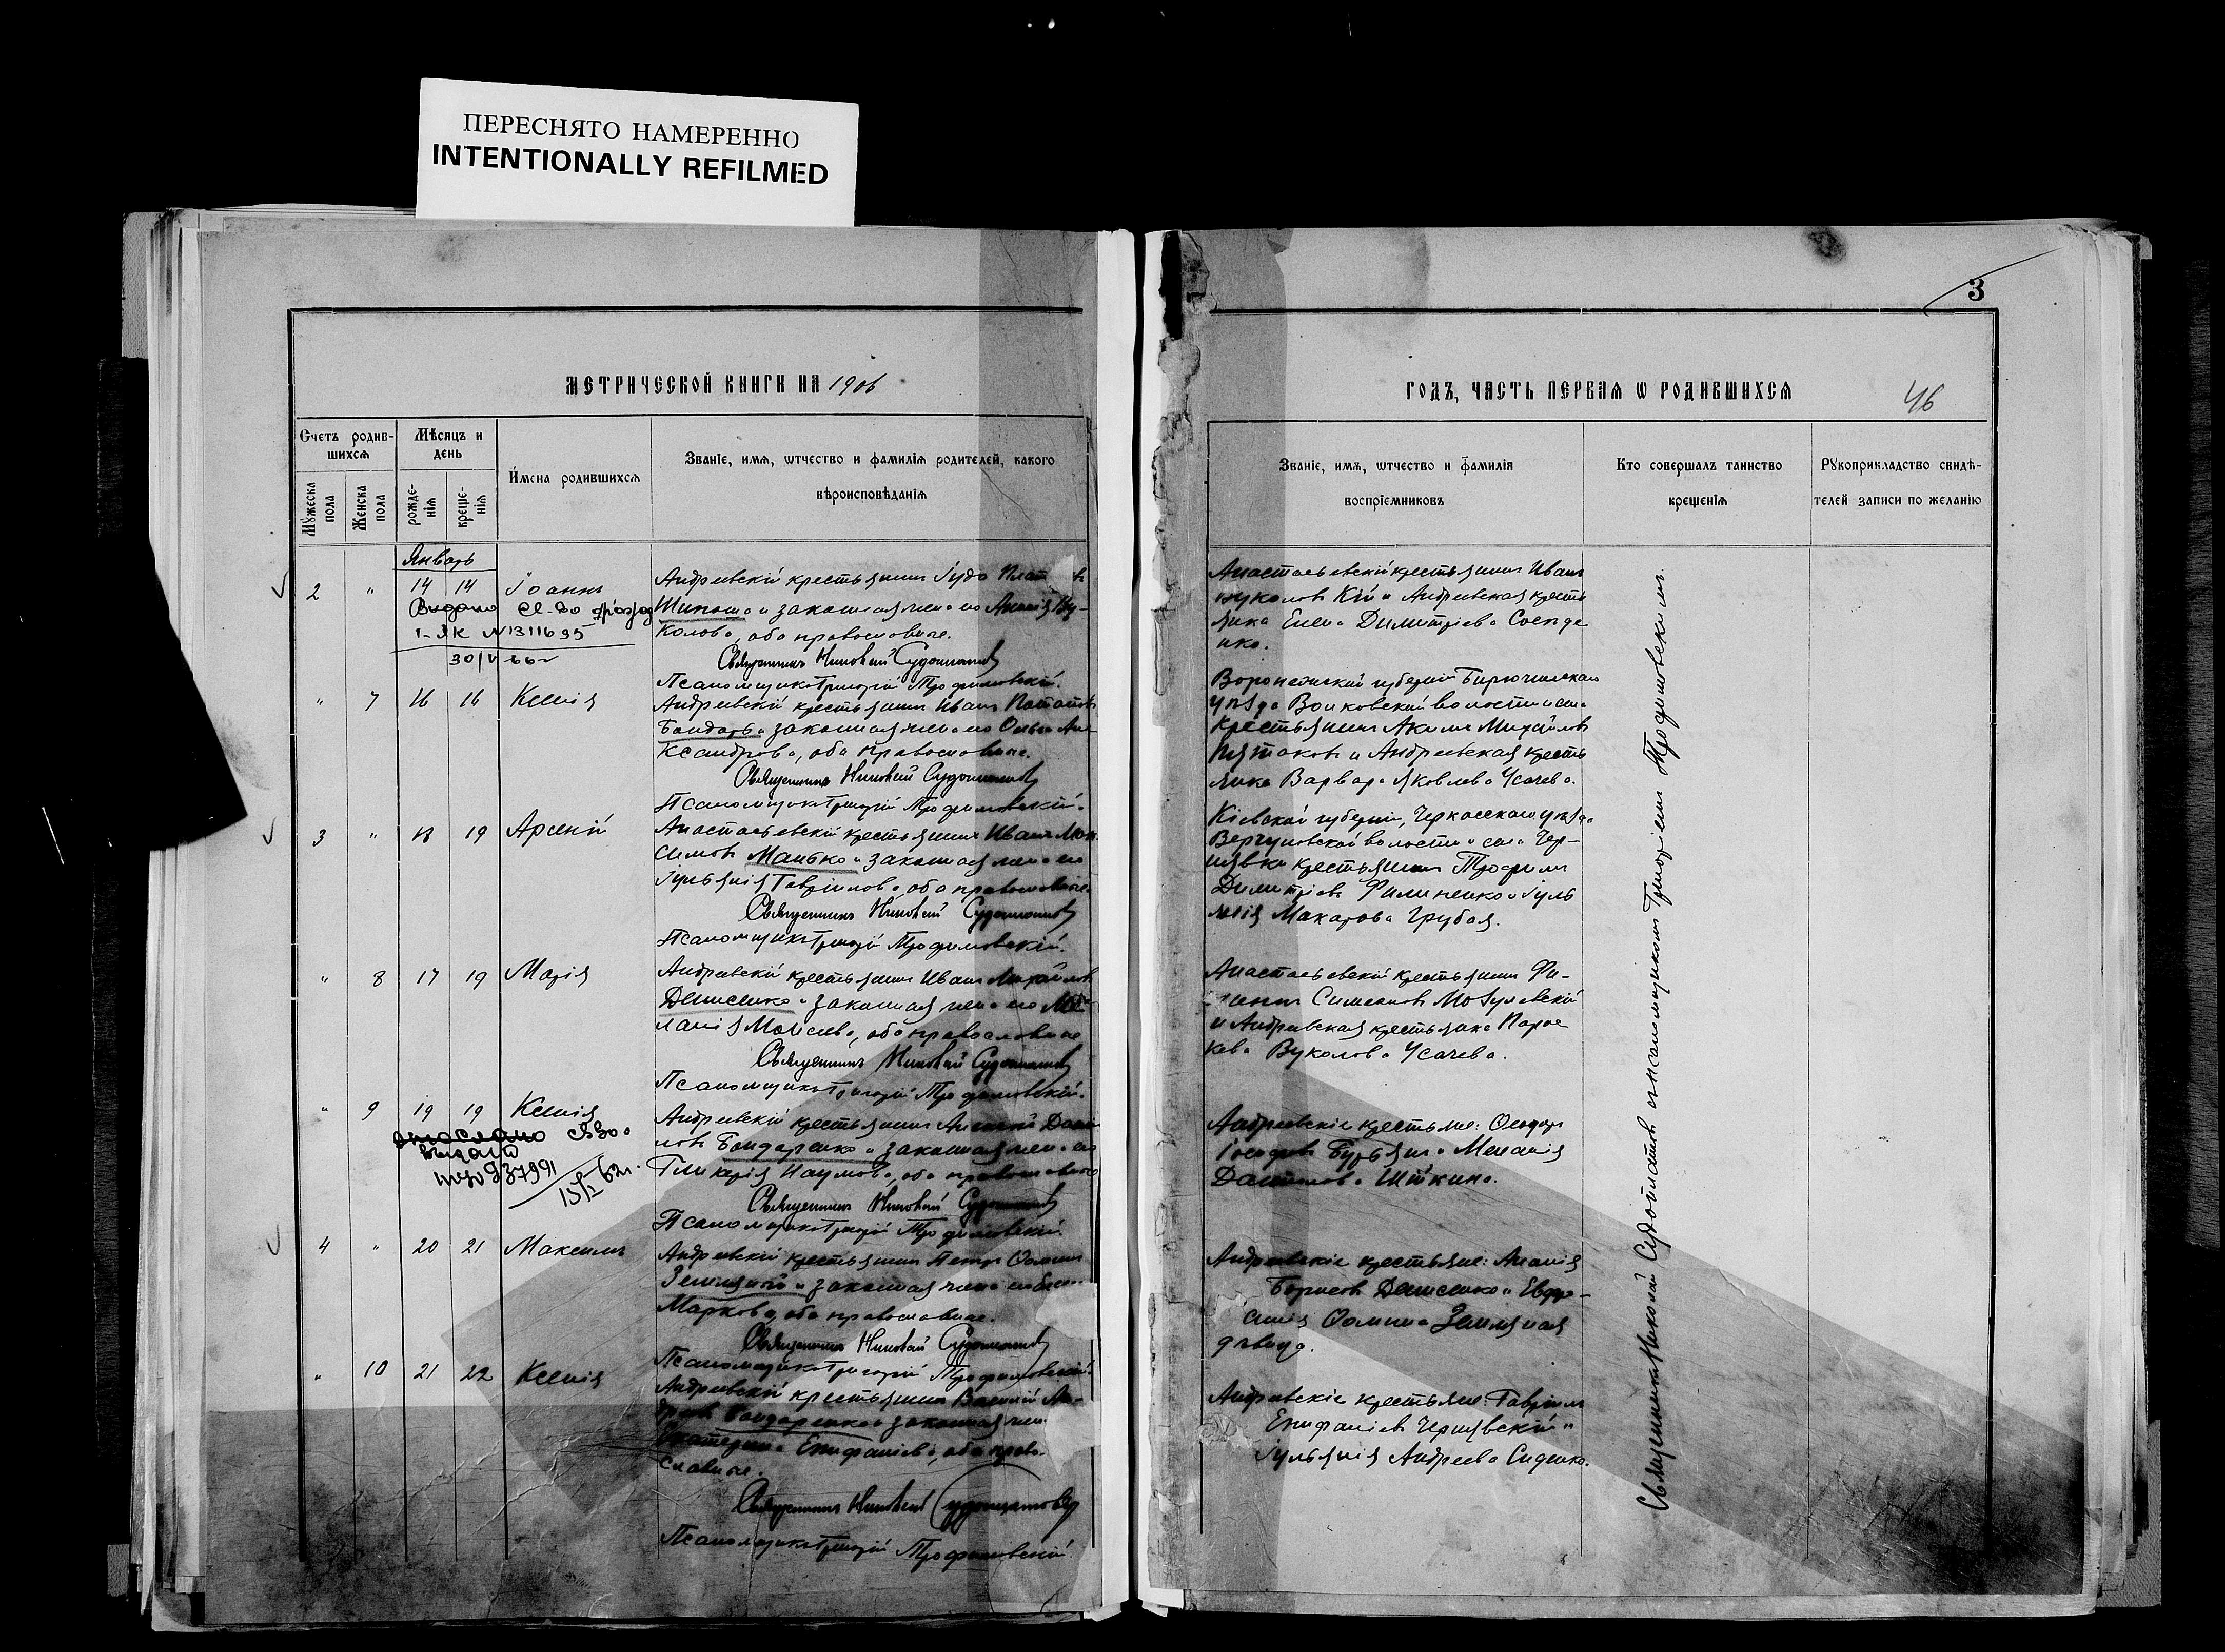 ПЕРЕСНЯТО НАМЕРЕННО
INTENTIONALLY REFILMED
3
МЕТРИЧЕСКОЙ КНИГИ НА 1906
ГОДЪ, ЧАСТЬ ПЕРВАѦ Ѡ РОДИВШИХСѦ
46
Счетъ родив-
шихсѧ
Мѣсяцъ и
день
Имена родившихсѧ
Званіе, имѧ, ѡтчество и фамиліѧ родителей, какого
вѣроисповѣданіѧ
Мꙋжеска
пола
Женска
пола
рожде-
ніѧ
креще-
ніѧ
Званіе, имѧ, ѡтчество и фамиліѧ
воспріемниковъ
Кто совершалъ таинство
крещеніѧ
Рꙋкоприкладство свидѣ-
телей записи по желанію
Январь
2 " 14 14 Іоаннъ
Андреевскій крестьянинъ Іуда
и законная жена его
колова, оба православные.
Священникъ Николай Судоплатовъ
Псаломщикъ Григорій Трофимовскій.
30/V 66г
Анастасьевскій крестьянинъ Иванъ
Вуколовъ Кій и Андреевская кресть
янка Елена Димитріева
нко.
" 7 16 16 Ксенія
Андреевскій крестьянинъ Иванъ
Бондарь и законная жена его Ольга Але
ксандрова, оба православные.
Священникъ Николай Судоплатовъ
Псаломщикъ Григорій Трофимовскій.
Воронежской губерніи Бирюченскаго
уѣзда волости и села
крестьянинъ Акимъ Михайловъ
Пятаковъ и Андреевская кресть
янка Варвара Яковлева Усачева.
3 " 18 19 Арсеній
Анастасьевскій крестьянинъ Иванъ Мак
симовъ Манько и законная жена его
Іуліанія Гавріилова, оба православные.
Священникъ Николай Судоплатовъ
Псаломщикъ Григорій Трофимовскій.
Кіевской губерніи, Черкасскаго уѣзда
Вергуновской волости и села Чер-
нявки крестьянинъ Трофимъ
Димитріевъ Филипенко и Іуль
янія Макарова Грубая.
" 8 17 19 Марія
Андреевскій крестьянинъ Иванъ Михайловъ
Денисенко и законная жена его Ме
ланія Моисеева, оба православные
Священникъ Николай Судоплатовъ
Псаломщикъ Григорій Трофимовскій.
Анастасьевскій крестьянинъ Фи-
Симеоновъ Мозулевскій
и Андреевская крестьянка Парас
кева Вуколова Усачева.
" 9 19 19 Ксенія
937991
15/X 62г.
Андреевскій крестьянинъ Дани
ловъ Бондаренко и законная жена его
Гликерія Наумова, оба православные
Священникъ Николай Судоплатовъ
Псаломщикъ Григорій Трофимовскій.
Андреевскіе крестьяне: Ѳеодоръ
Іосифовъ Бурьян и Меланія
Данилова Шішкина.
4 " 20 21 Максимъ
Андреевскій крестьянинъ Петръ Ѳоминъ
Земляной и законная жена его
Маркова, оба православные.
Священникъ Николай Судоплатовъ
Псаломщикъ Григорій Трофимовскій.
Андреевскіе крестьяне: Ананія
Борисовъ Денисенко и Евфро-
синія Ѳомина Земляная
дѣвица.
" 10 21 22 Ксенія
Андреевскій крестьянинъ Василій
Бондаренко и законная жена
Екатерина Епифаніева, оба право-
славные.
Священникъ Николай Судоплатовъ
Псаломщикъ Григорій Трофимовскій
Андреевскіе крестьяне: Гавріилъ
Епифаніевъ Чернявскій и
Іульянія Андреева Сиденко.
Священникъ Николай Судоплатовъ съ псаломщикомъ Григоріемъ Трофимовскимъ.